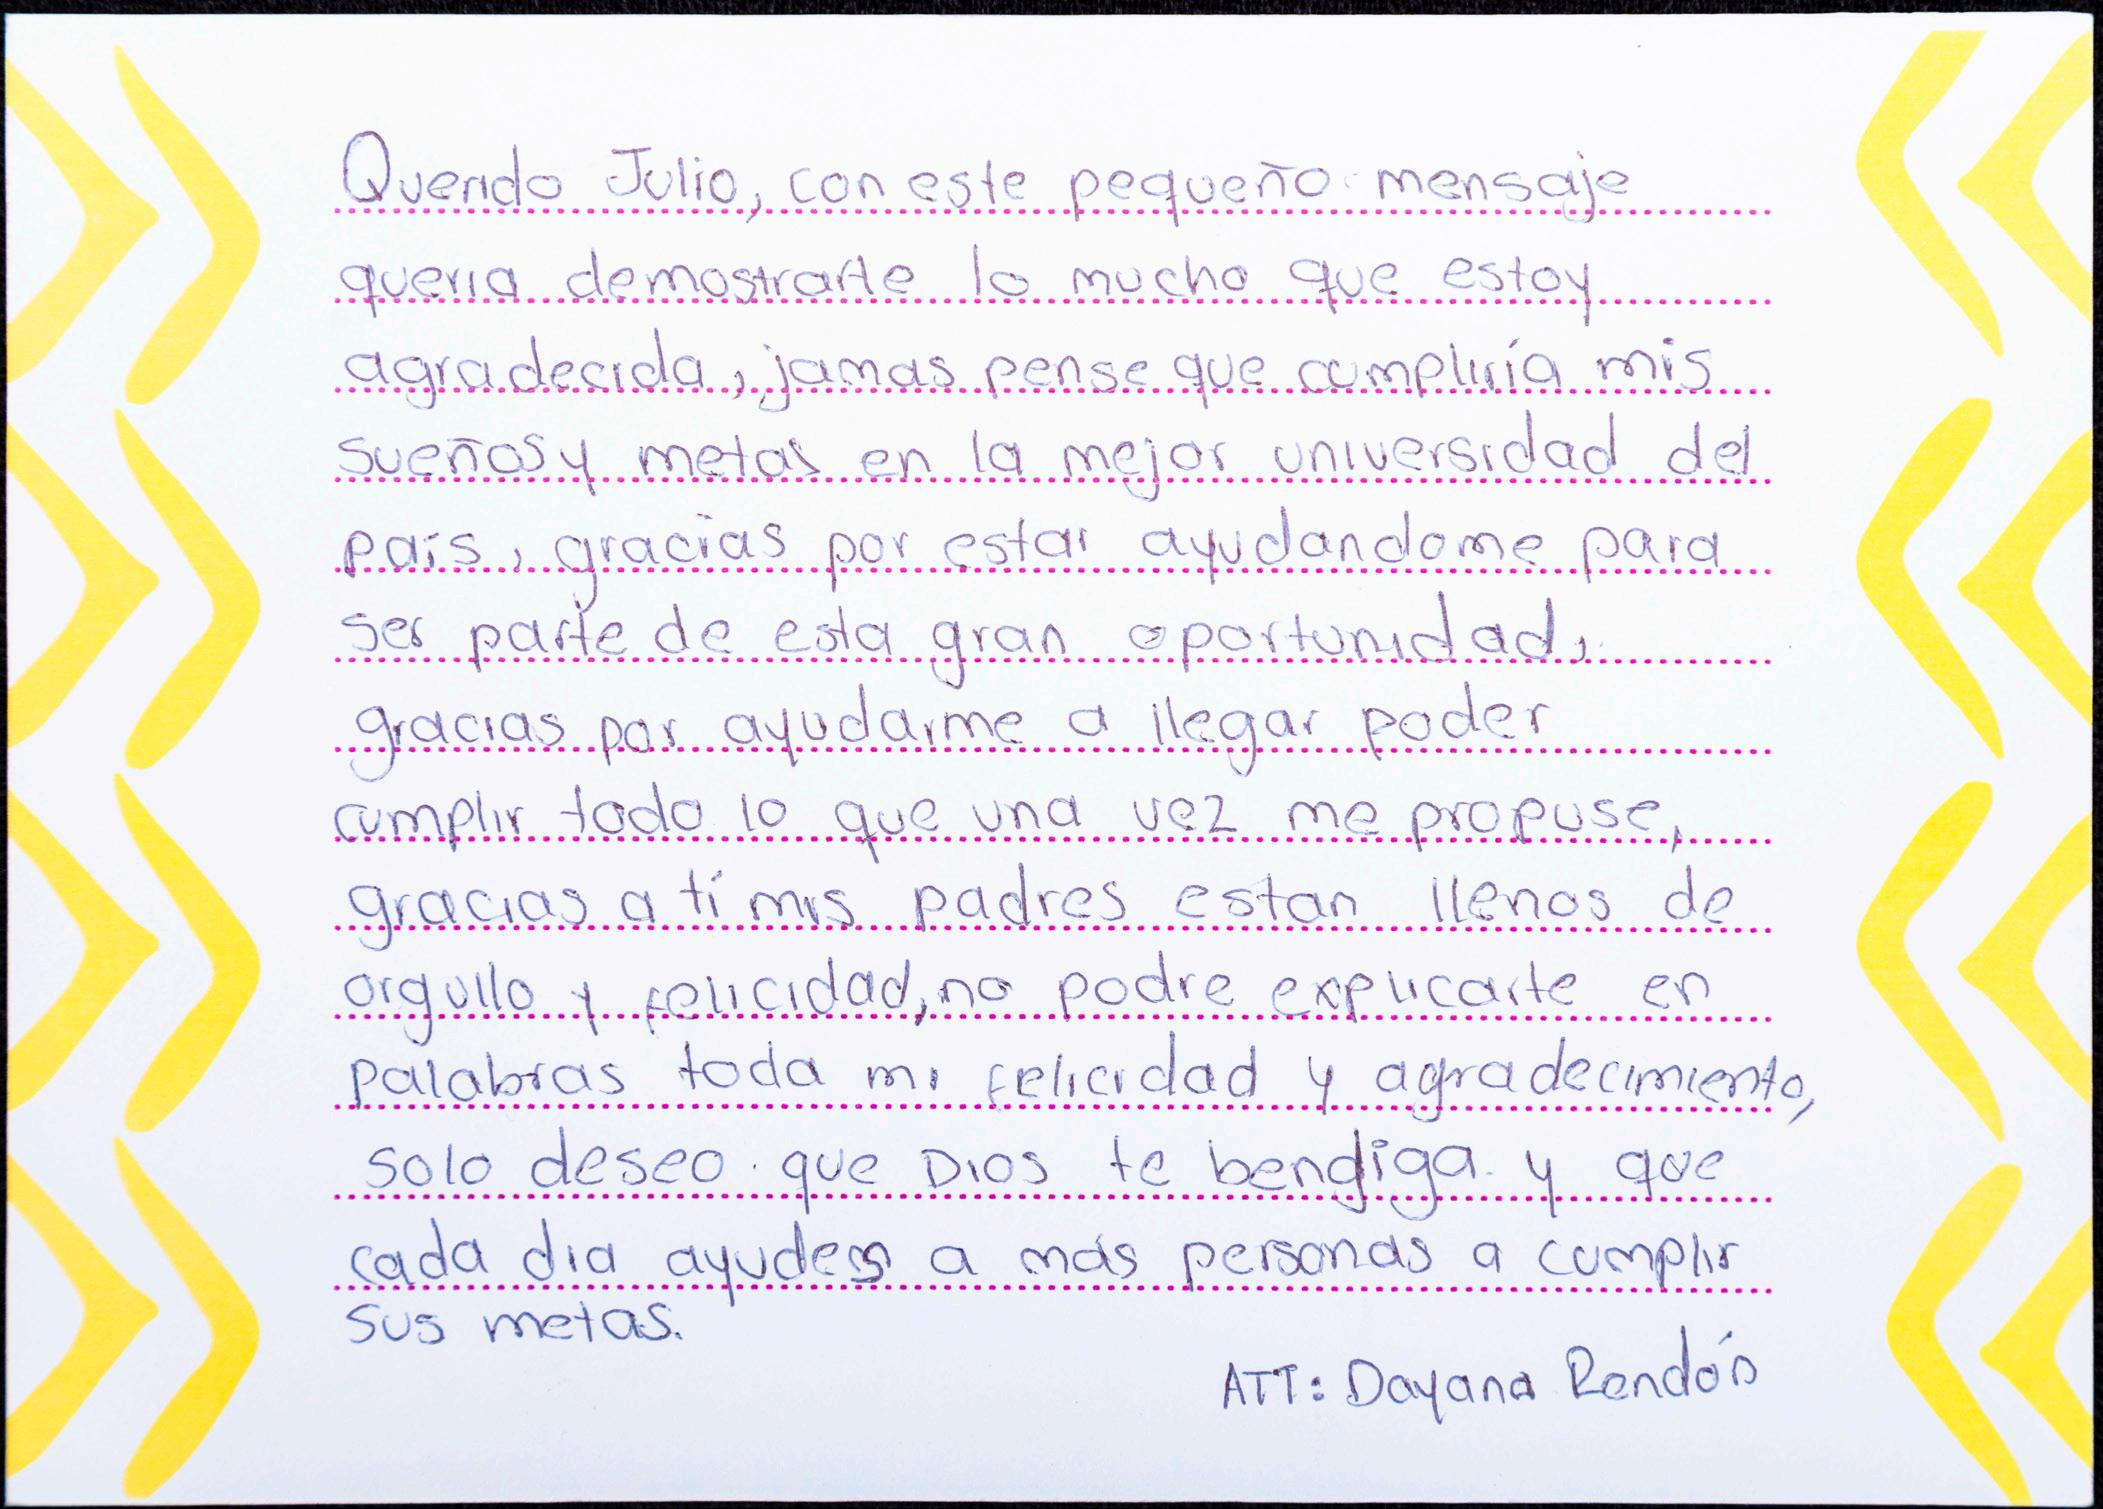 Querido Julio, con este pequeño mensaje
queria demostrarte lo mucho que estoy
agradecida, jamas pense que cumpliría mis
sueños y metas en la mejor universidad del
país, gracias por estar ayudandome para
ser parte de esta gran oportunidad,
gracias por ayudarme a llegar poder
cumplir todo lo que una vez me propuse,
gracias a tí mis padres estan llenos de
orgullo y felicidad, no podre explicarte en
palabras toda mi felicidad y agradecimiento,
solo deseo que Dios te bendiga y que
cada dia ayudes a más personas a cumplir
sus metas.
ATT: Dayana Rendón